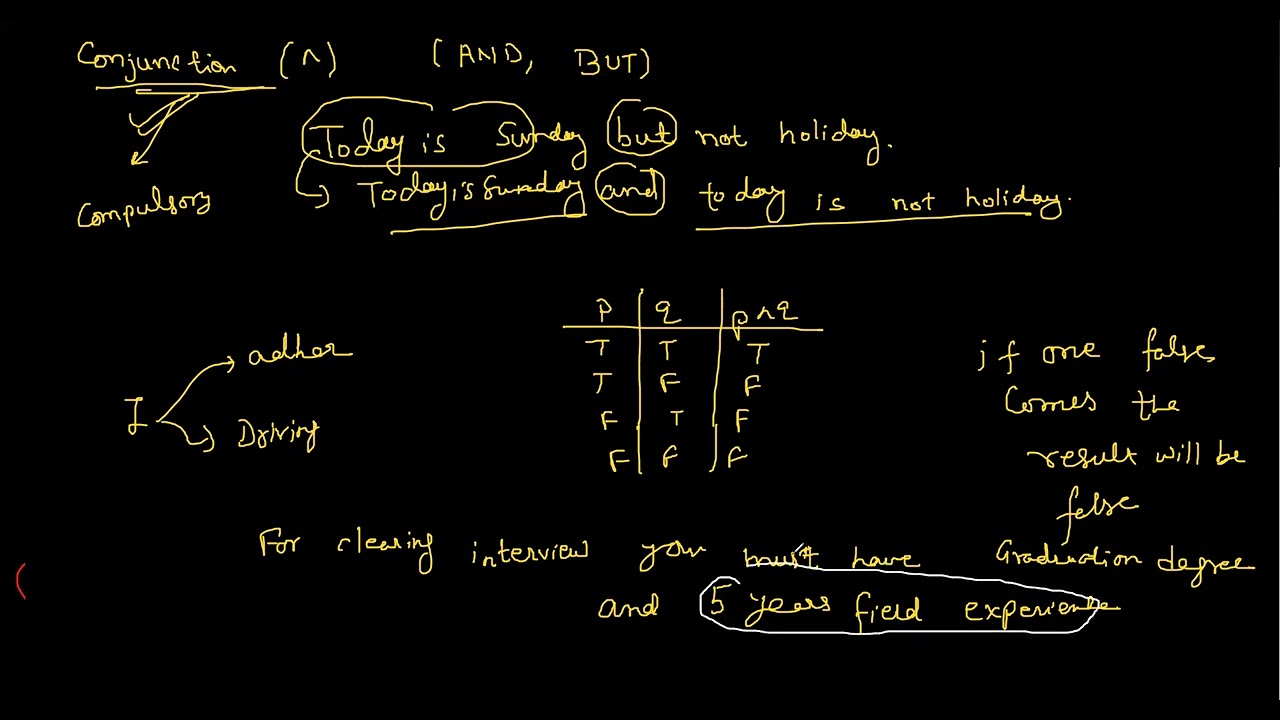 Conjunction (∧) (AND, BUT)
Today is Sunday but not holiday.
Today is Sunday and today is not holiday.
Compulsory
p q p∧q
T T T
T F F
F T F
F F F
I
adhar
Driving
if one false
Comes the
result will be
false
For clearing interview you must have Graduation degree
and 5 years field experience
(